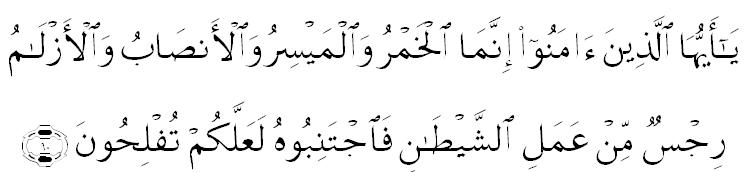 يَـٰٓأَيُّهَا ٱلَّذِينَ ءَامَنُوٓا۟ إِنَّمَا ٱلْخَمْرُ وَٱلْمَيْسِرُ وَٱلْأَنصَابُ وَٱلْأَزْلَـٰمُ
رِجْسٌ مِّنْ عَمَلِ ٱلشَّيْطَـٰنِ فَٱجْتَنِبُوهُ لَعَلَّكُمْ تُفْلِحُونَ